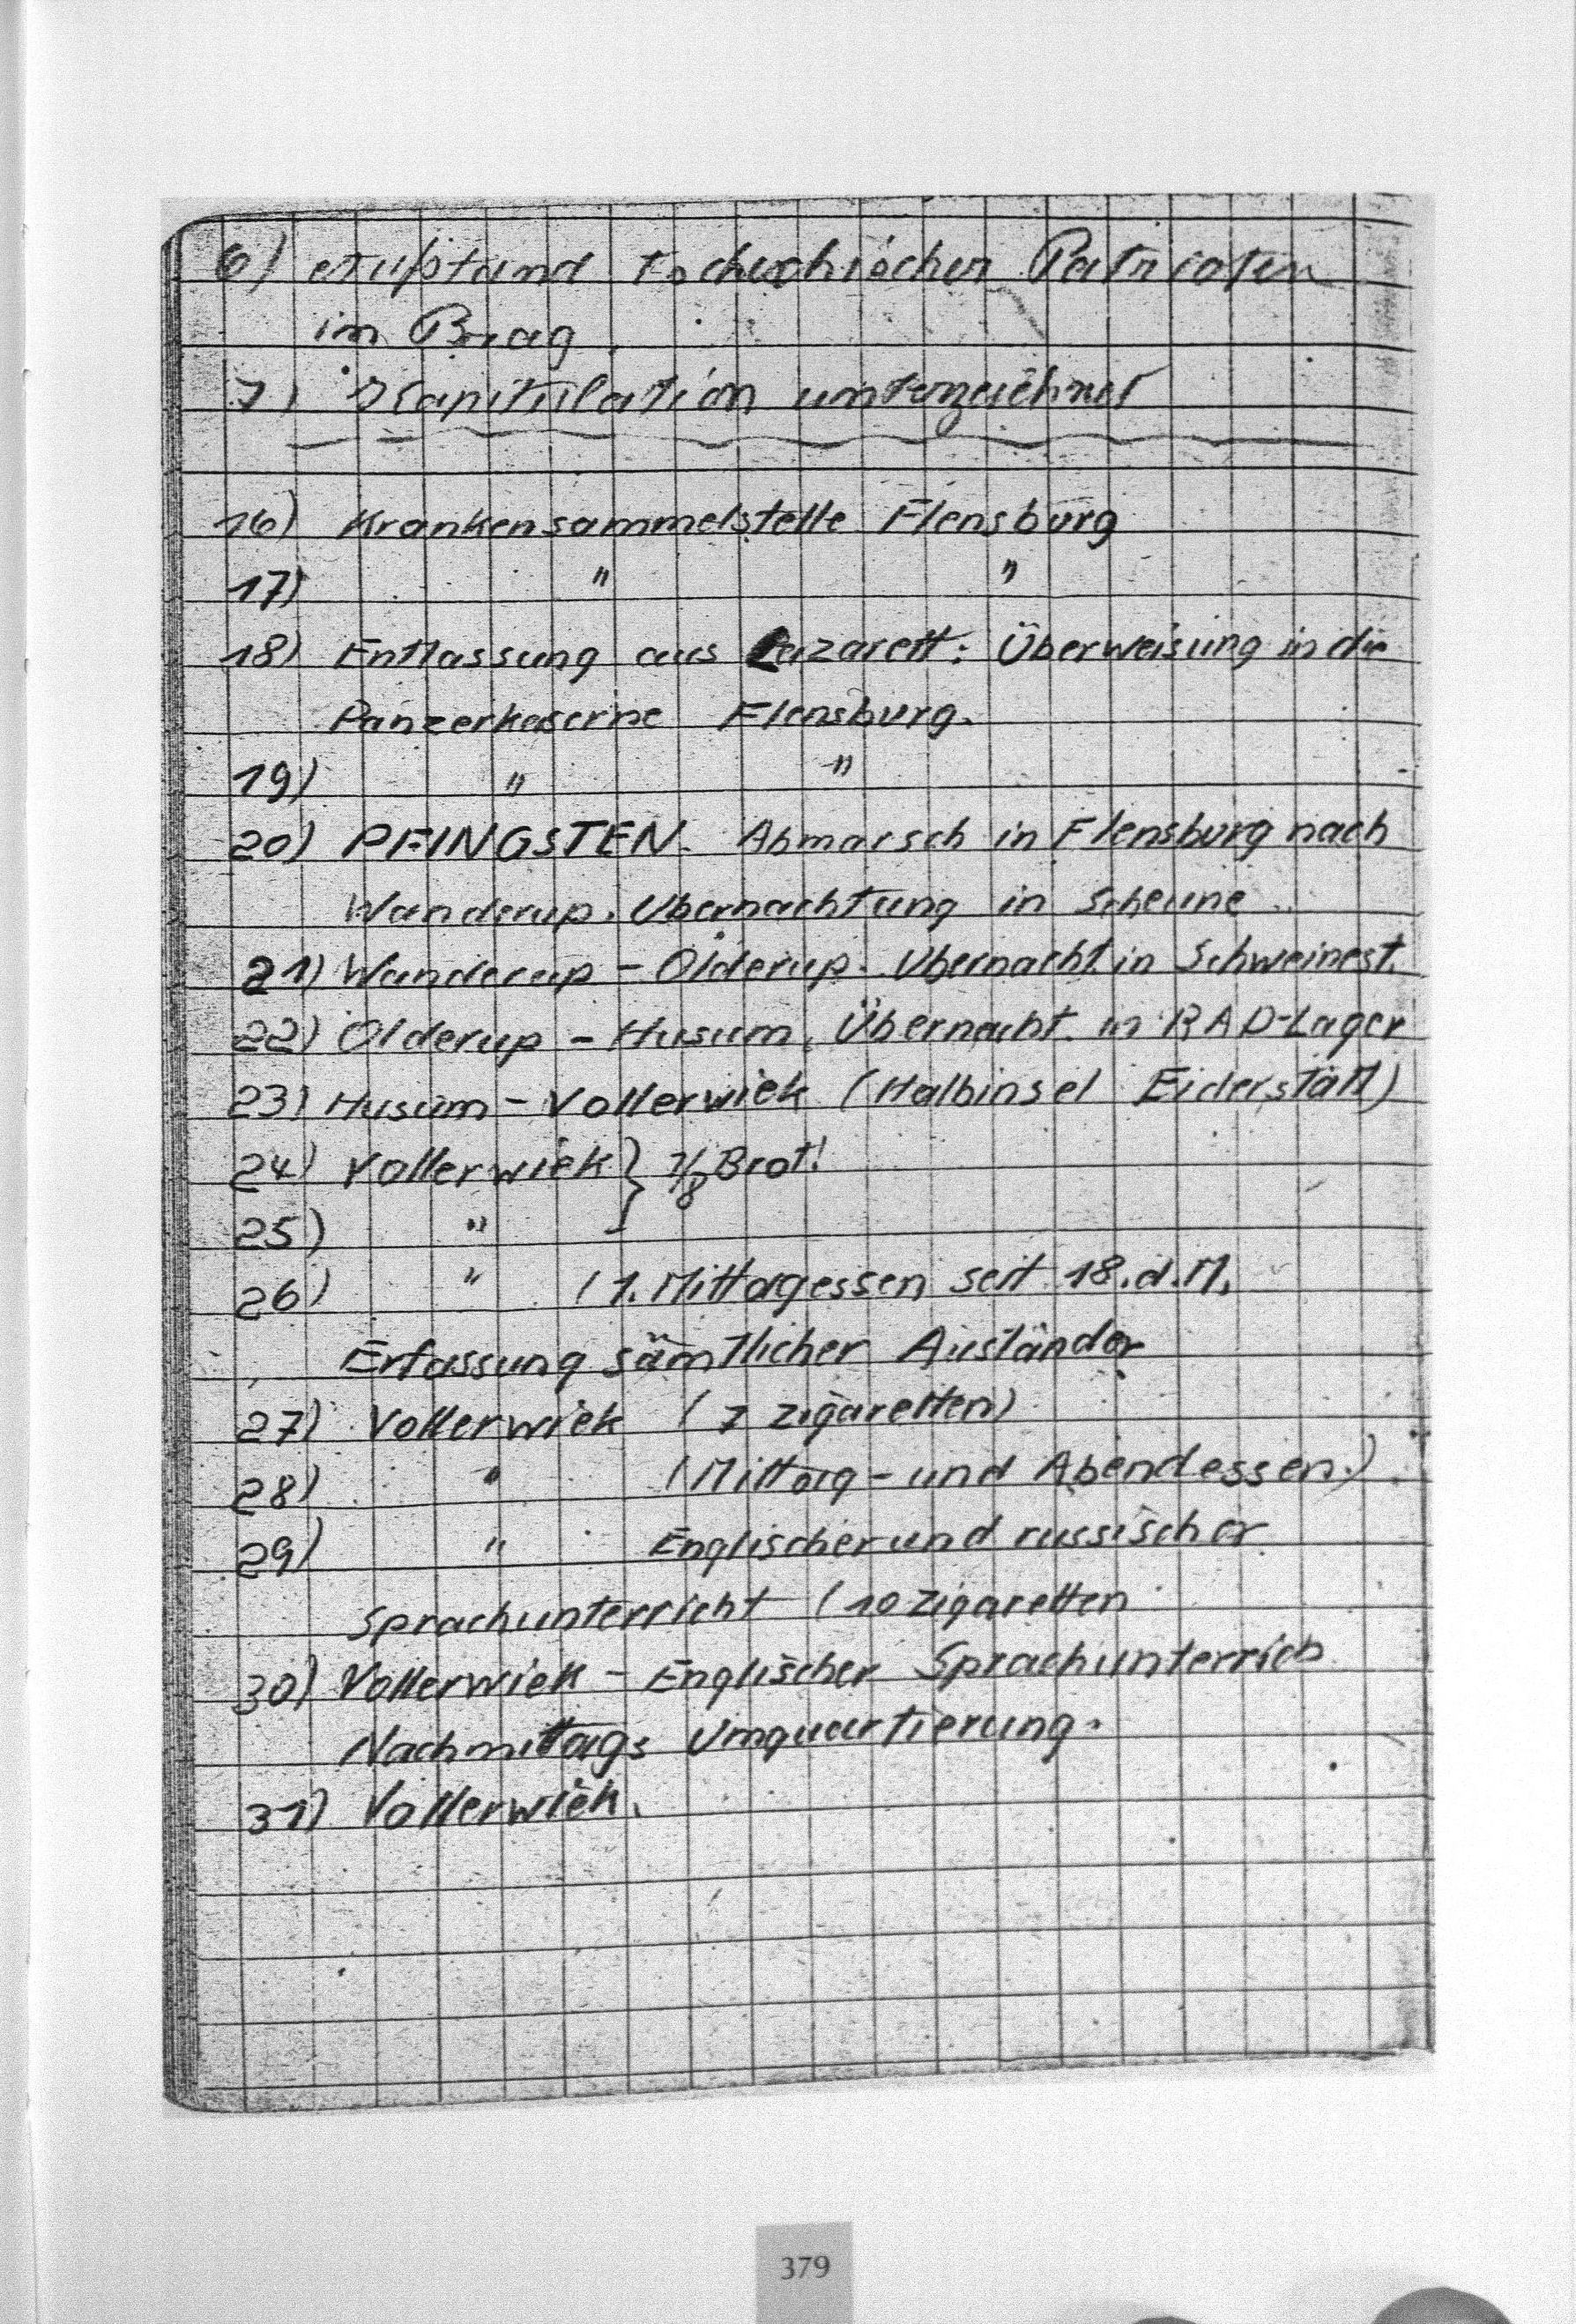 6) Aufstand tschechischer Patrioten
im Prag.
7) Kapitulation unterzeichnet
16) Krankensammelstelle Flensburg
17) " "
18) Entlassung aus Lazarett: Überweisung in die
Panzerkaserne Flensburg.
19) " "
20) PFINGSTEN. Abmarsch in Flensburg nach
Wanderup. Übernachtung in Scheune.
21) Wanderup - Olderup. Übernacht. in Schweinest.
22) Olderup - Husum, Übernacht. in RAD-Lager
23) Husum - Vollerwiek (Halbinsel Eiderstätt)
24) Vollerwiek } 1/8 Brot!
25) "
26) " (1. Mittagessen seit 18.d.M.
Erfassung sämtlicher Ausländer
27) Vollerwiek (7 Zigaretten)
28) " (Mittag- und Abendessen.)
29) " Englischer und russischer
Sprachunterricht (10 Zigaretten
30) Vollerwiek - Englischer Sprachunterrich
Nachmittags Umquartierung.
31) Vollerwiek.
379